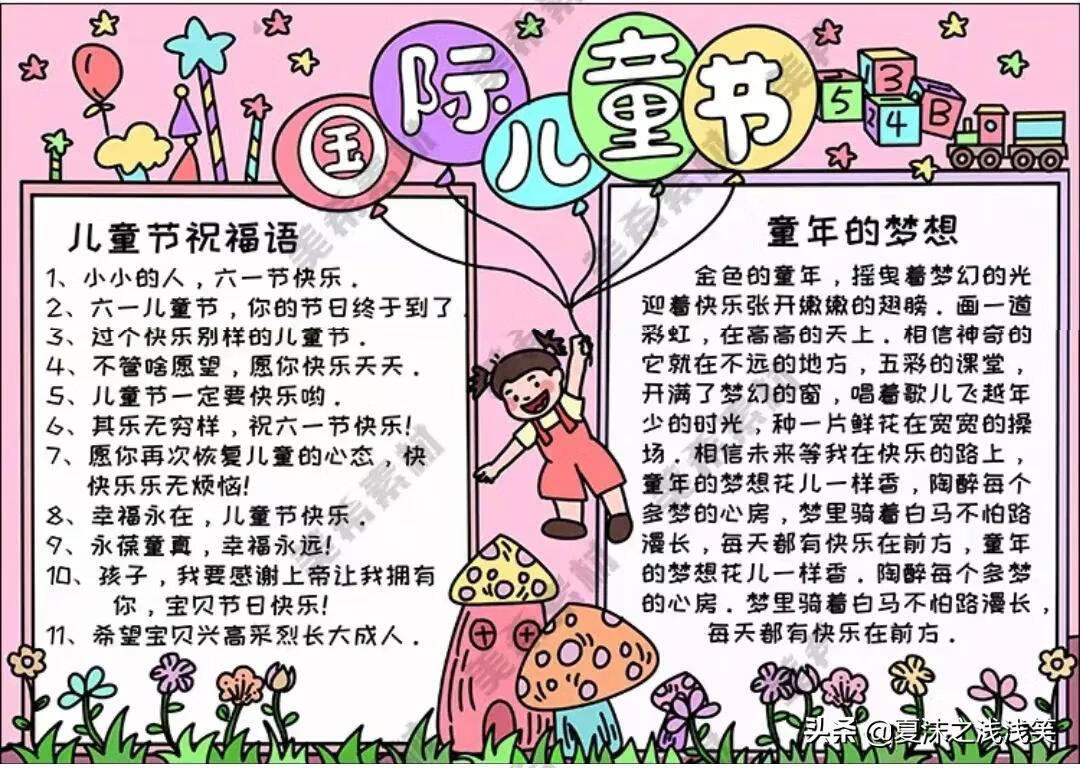 国际儿童节
5
3
4
B
儿童节祝福语
1、小小的人，六一节快乐.
2、六一儿童节，你的节日终于到了.
3、过个快乐别样的儿童节.
4、不管啥愿望，愿你快乐天天.
5、儿童节一定要快乐哟.
6、其乐无穷样，祝六一节快乐!
7、愿你再次恢复儿童的心态，快
快乐乐无烦恼!
8、幸福永在，儿童节快乐.
9、永葆童真，幸福永远!
10、孩子，我要感谢上帝让我拥有
你，宝贝节日快乐!
11、希望宝贝兴高采烈长大成人.
童年的梦想
金色的童年，摇曳着梦幻的光
迎着快乐张开嫩嫩的翅膀.画一道
彩虹，在高高的天上.相信神奇的
它就在不远的地方，五彩的课堂，
开满了梦幻的窗，唱着歌儿飞越年
少的时光，种一片鲜花在宽宽的操
场.相信未来等我在快乐的路上，
童年的梦想花儿一样香，陶醉每个
多梦的心房，梦里骑着白马不怕路
漫长，每天都有快乐在前方，童年
的梦想花儿一样香.陶醉每个多梦
的心房.梦里骑着白马不怕路漫长，
每天都有快乐在前方.
美希素材
头条 @夏沫之浅浅笑